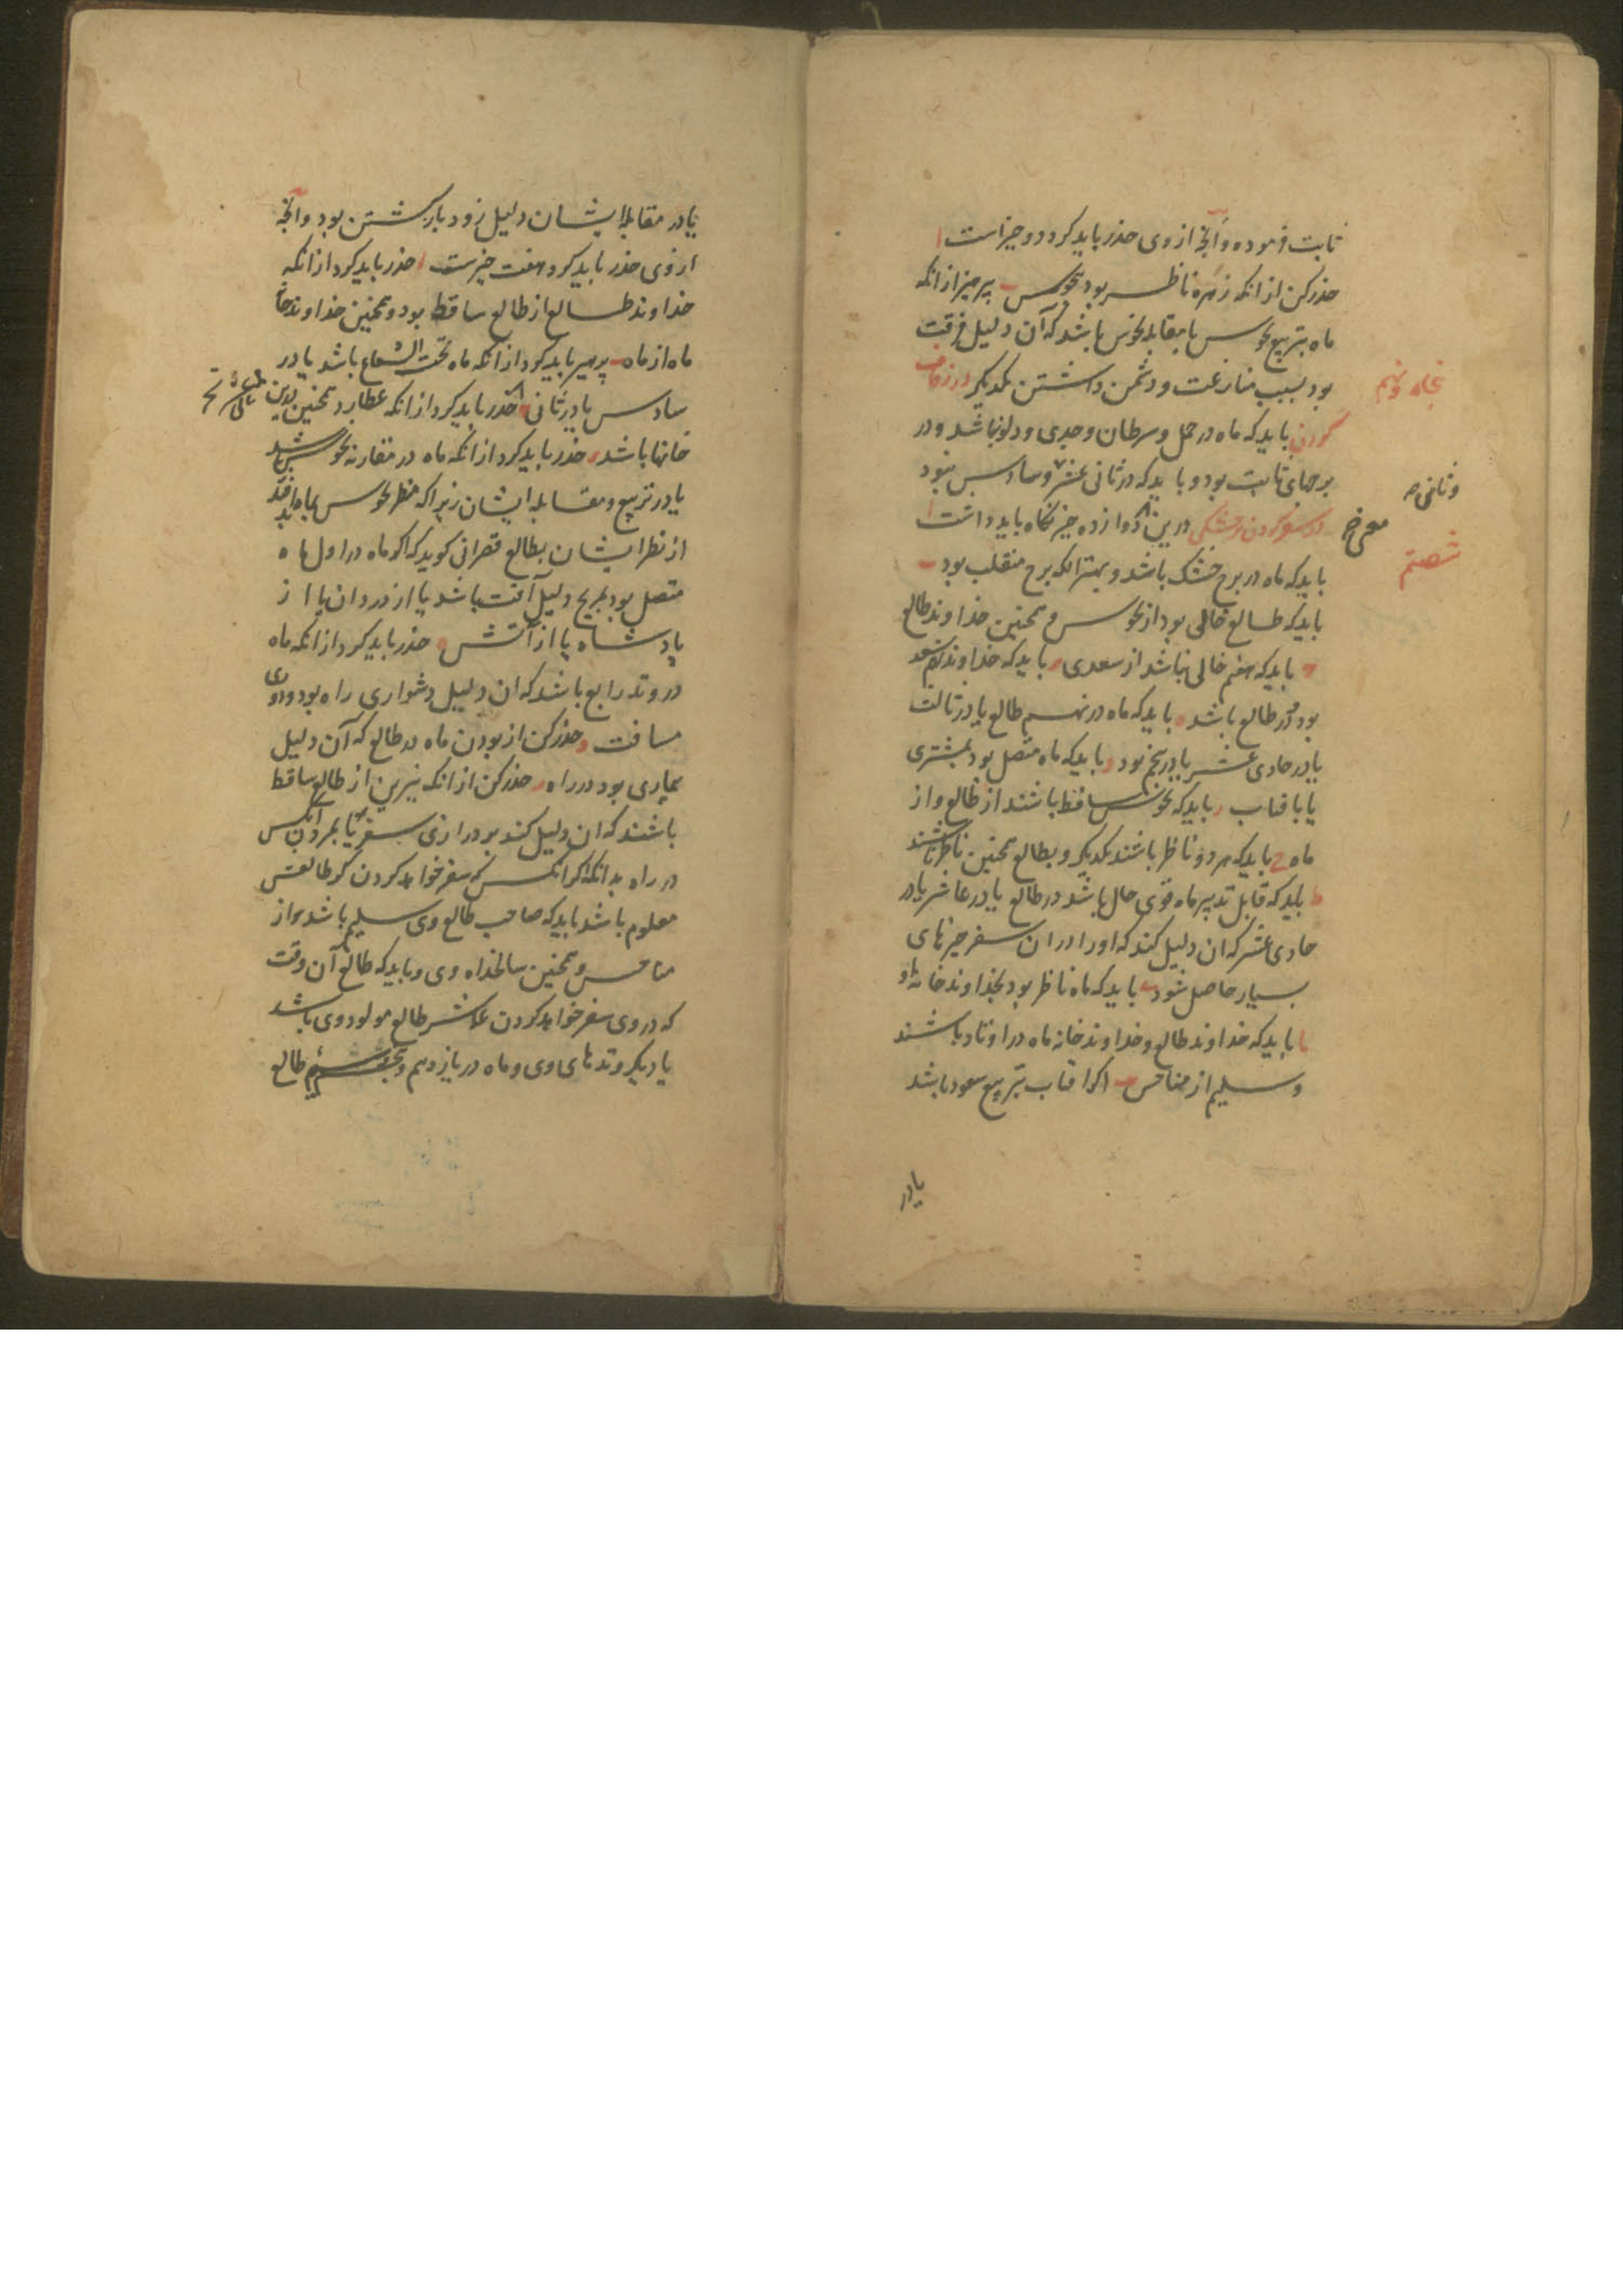 ثابت فرموده و آنچ از وی حذر باید کرد دو چیز است ا
حذر کن از انکه زهره ناظر بود بنحوس ب پرهیز از انکه
ماه بتربیع نحوس یا بمقابله نحوس باشد که آن دلیل فرقت
بود بسبب منازعت و دشمن داشتن یکدیکر در زفاف
پنجاه و نهم
کردن باید که ماه در حمل و سرطان و جدی و دلو نباشد و در
برجهای ثابت بود و باید که در ثانی عشر و سادس نبود
در سفر کردن در خشکی درین دوازده چیز نکاه باید داشت ا
شصتم
باید که ماه در برج خشک باشد و بهتر انکه برج منقلب بود ب
باید که طالع خالی بود از نحوس و همچنین خداوند طالع
ج باید که هفتم خالی نباشد از سعدی د باید که خداوند نهم سعد
بود در طالع باشد ه باید که ماه در نهم طالع یا در ثالث
یا در حادی عشر یا در پنجم بود و باید که ماه متصل بود بمشتری
یا بافتاب ز باید که نحوس ساقط باشند از طالع و از
ماه ح باید که هر دو ناظر باشند یکدیکر و بطالع همچنین ناظر باشند
ط باید که قابل تدبیر ماه قوی حال باشد در طالع یا در عاشر یا در
حادی عشر که ان دلیل کند که او را در ان سفر چیزهای
بسیار حاصل شود ی باید که ماه ناظر بود بخذاوند خانه او
یا باید که خداوند طالع و خداوند خانه ماه در اوتاد باشند
و سلیم از مناحس یب اکر افتاب بتربیع سعود باشد
یا در
یا در مقابله ایشان دلیل زود باز کشتن بود و آنچه
از وی حذر باید کرد هفت چیزست ا حذر باید کرد از انکه
خداوند طالع از طالع ساقط بود و همچنین خداوند خانه
ماه از ماه ب پرهیز باید کرد از انکه ماه تحت الشعاع باشد یا در
سادس یا در ثانی ج حذر باید کرد از انکه عطارد همچنین بدین
خانها باشد د حذر باید کرد از انکه ماه در مقارنه نحوس باشد
یا در تربیع و مقابله ایشان زیرا که منظر نحوس بماه بد
از نظر ایشان بطالع قصرانی کوید که اکر ماه در اول ماه
متصل بود بمریخ دلیل آفت باشد یا از دزدان یا از
پادشاه یا از آتش ه حذر باید کرد از انکه ماه
در وتد رابع باشد که ان دلیل دشواری راه بود و دوری
مسافت و حذر کن از بودن ماه در طالع که آن دلیل
بیماری بود در راه ز حذر کن از انکه نیرین از طالع ساقط
باشند که ان دلیل کند بر درازی سفر یا بمردن انکس
در راه بدانکه اکر انکس که سفر خواهد کردن کر طالعش
معلوم باشد باید که صاحب طالع وی سلیم باشد از
مناحس و همچنین سالخذاه وی و باید که طالع آن وقت
که در وی سفر خواهد کردن عاشر طالع مولود وی باشد
یا دیکر وتدهای وی و ماه در یازدهم و طالع